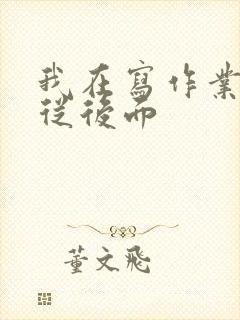 我在寫作業
從後面
董文飛